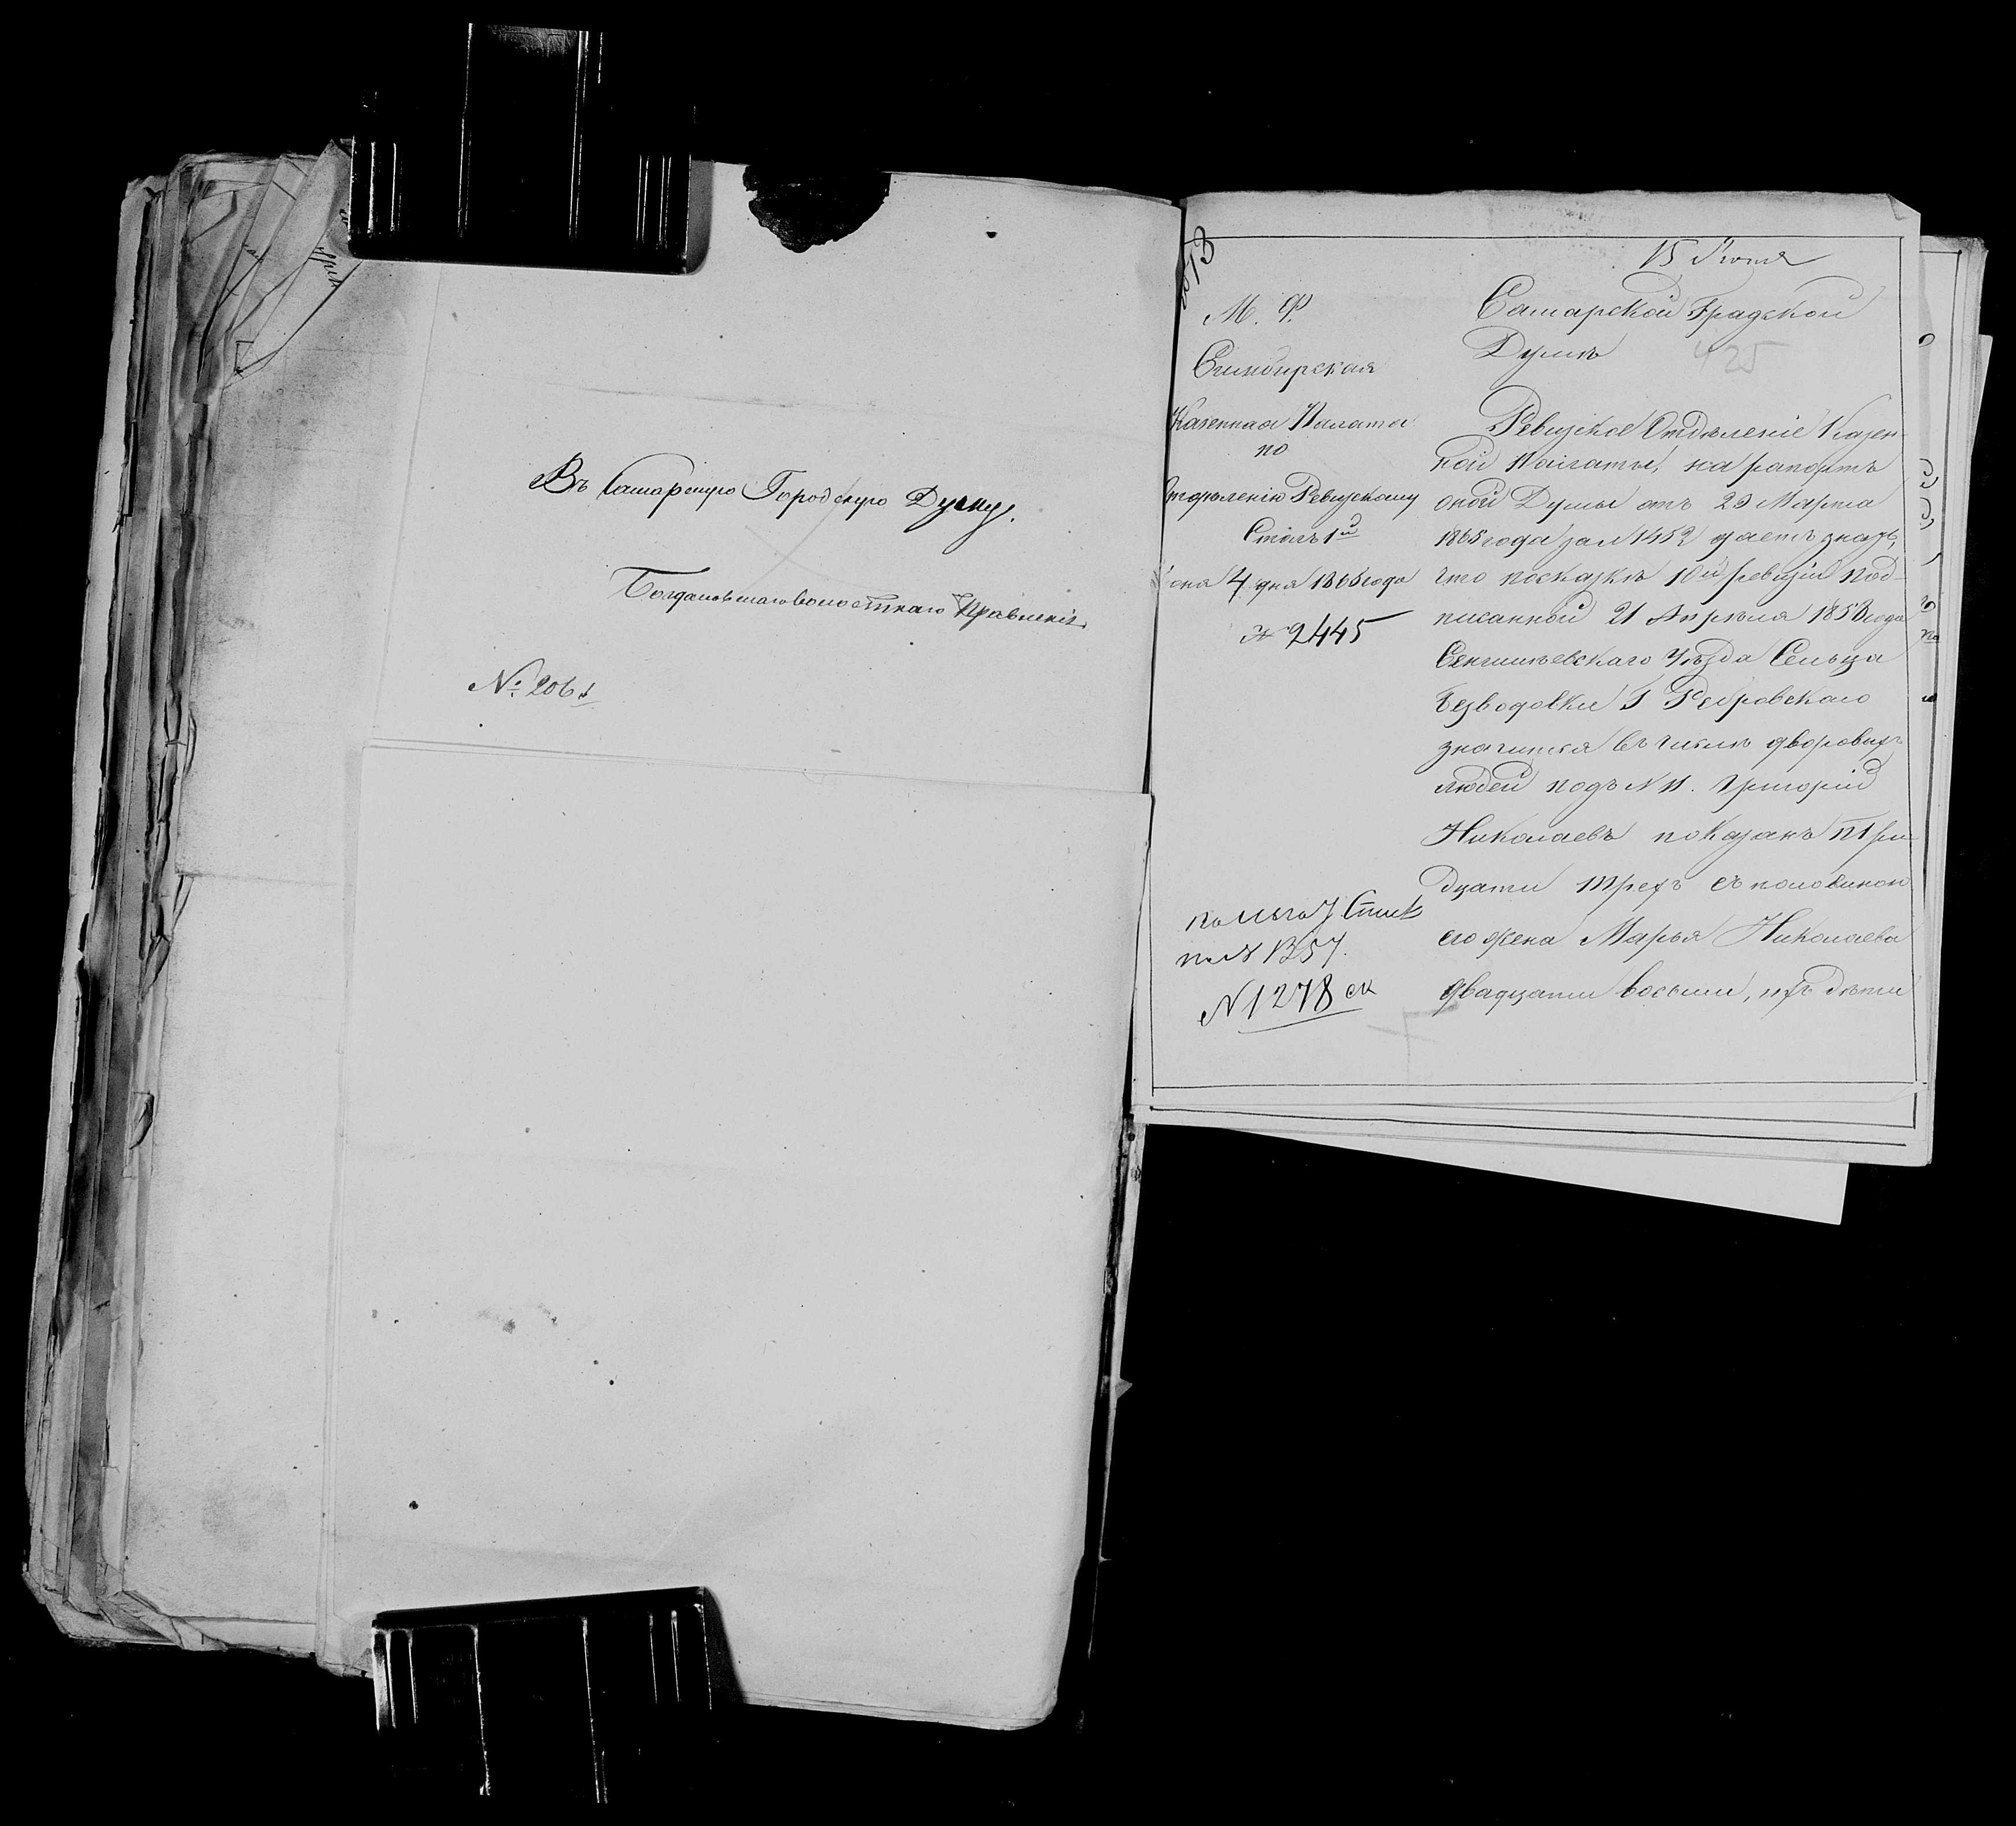 Въ Самарскую Городскую Думу.
Богдановскаго волостнаго Правленія
№ 206
15 Июня
М. Ф.
Симбирская
Казенная Палата
по
Отдѣленію Ревизскому
Столъ 1й
4 дня 1865 года
№ 2445
Самарской Градской
Думѣ
425
Ревизское Отдѣленіе Казен-
ной Палаты, на рапортъ
оной Думы отъ 23 Марта
1865 года за № 1452 даетъ знать,
что по сказкѣ 10й ревизіи под-
писанной 21 Апрѣля 1858 года
Сенгилѣевскаго Уѣзда Сельца
Безводовки Г Ребровскаго
значится въ числѣ дворовыхъ
людей подъ № 11. Григорій
Николаевъ показанъ три
дцати трехъ съ половиною
его жена Марья Николаева
двадцати восьми, ихъ дѣти
№ 1357.
№ 1278